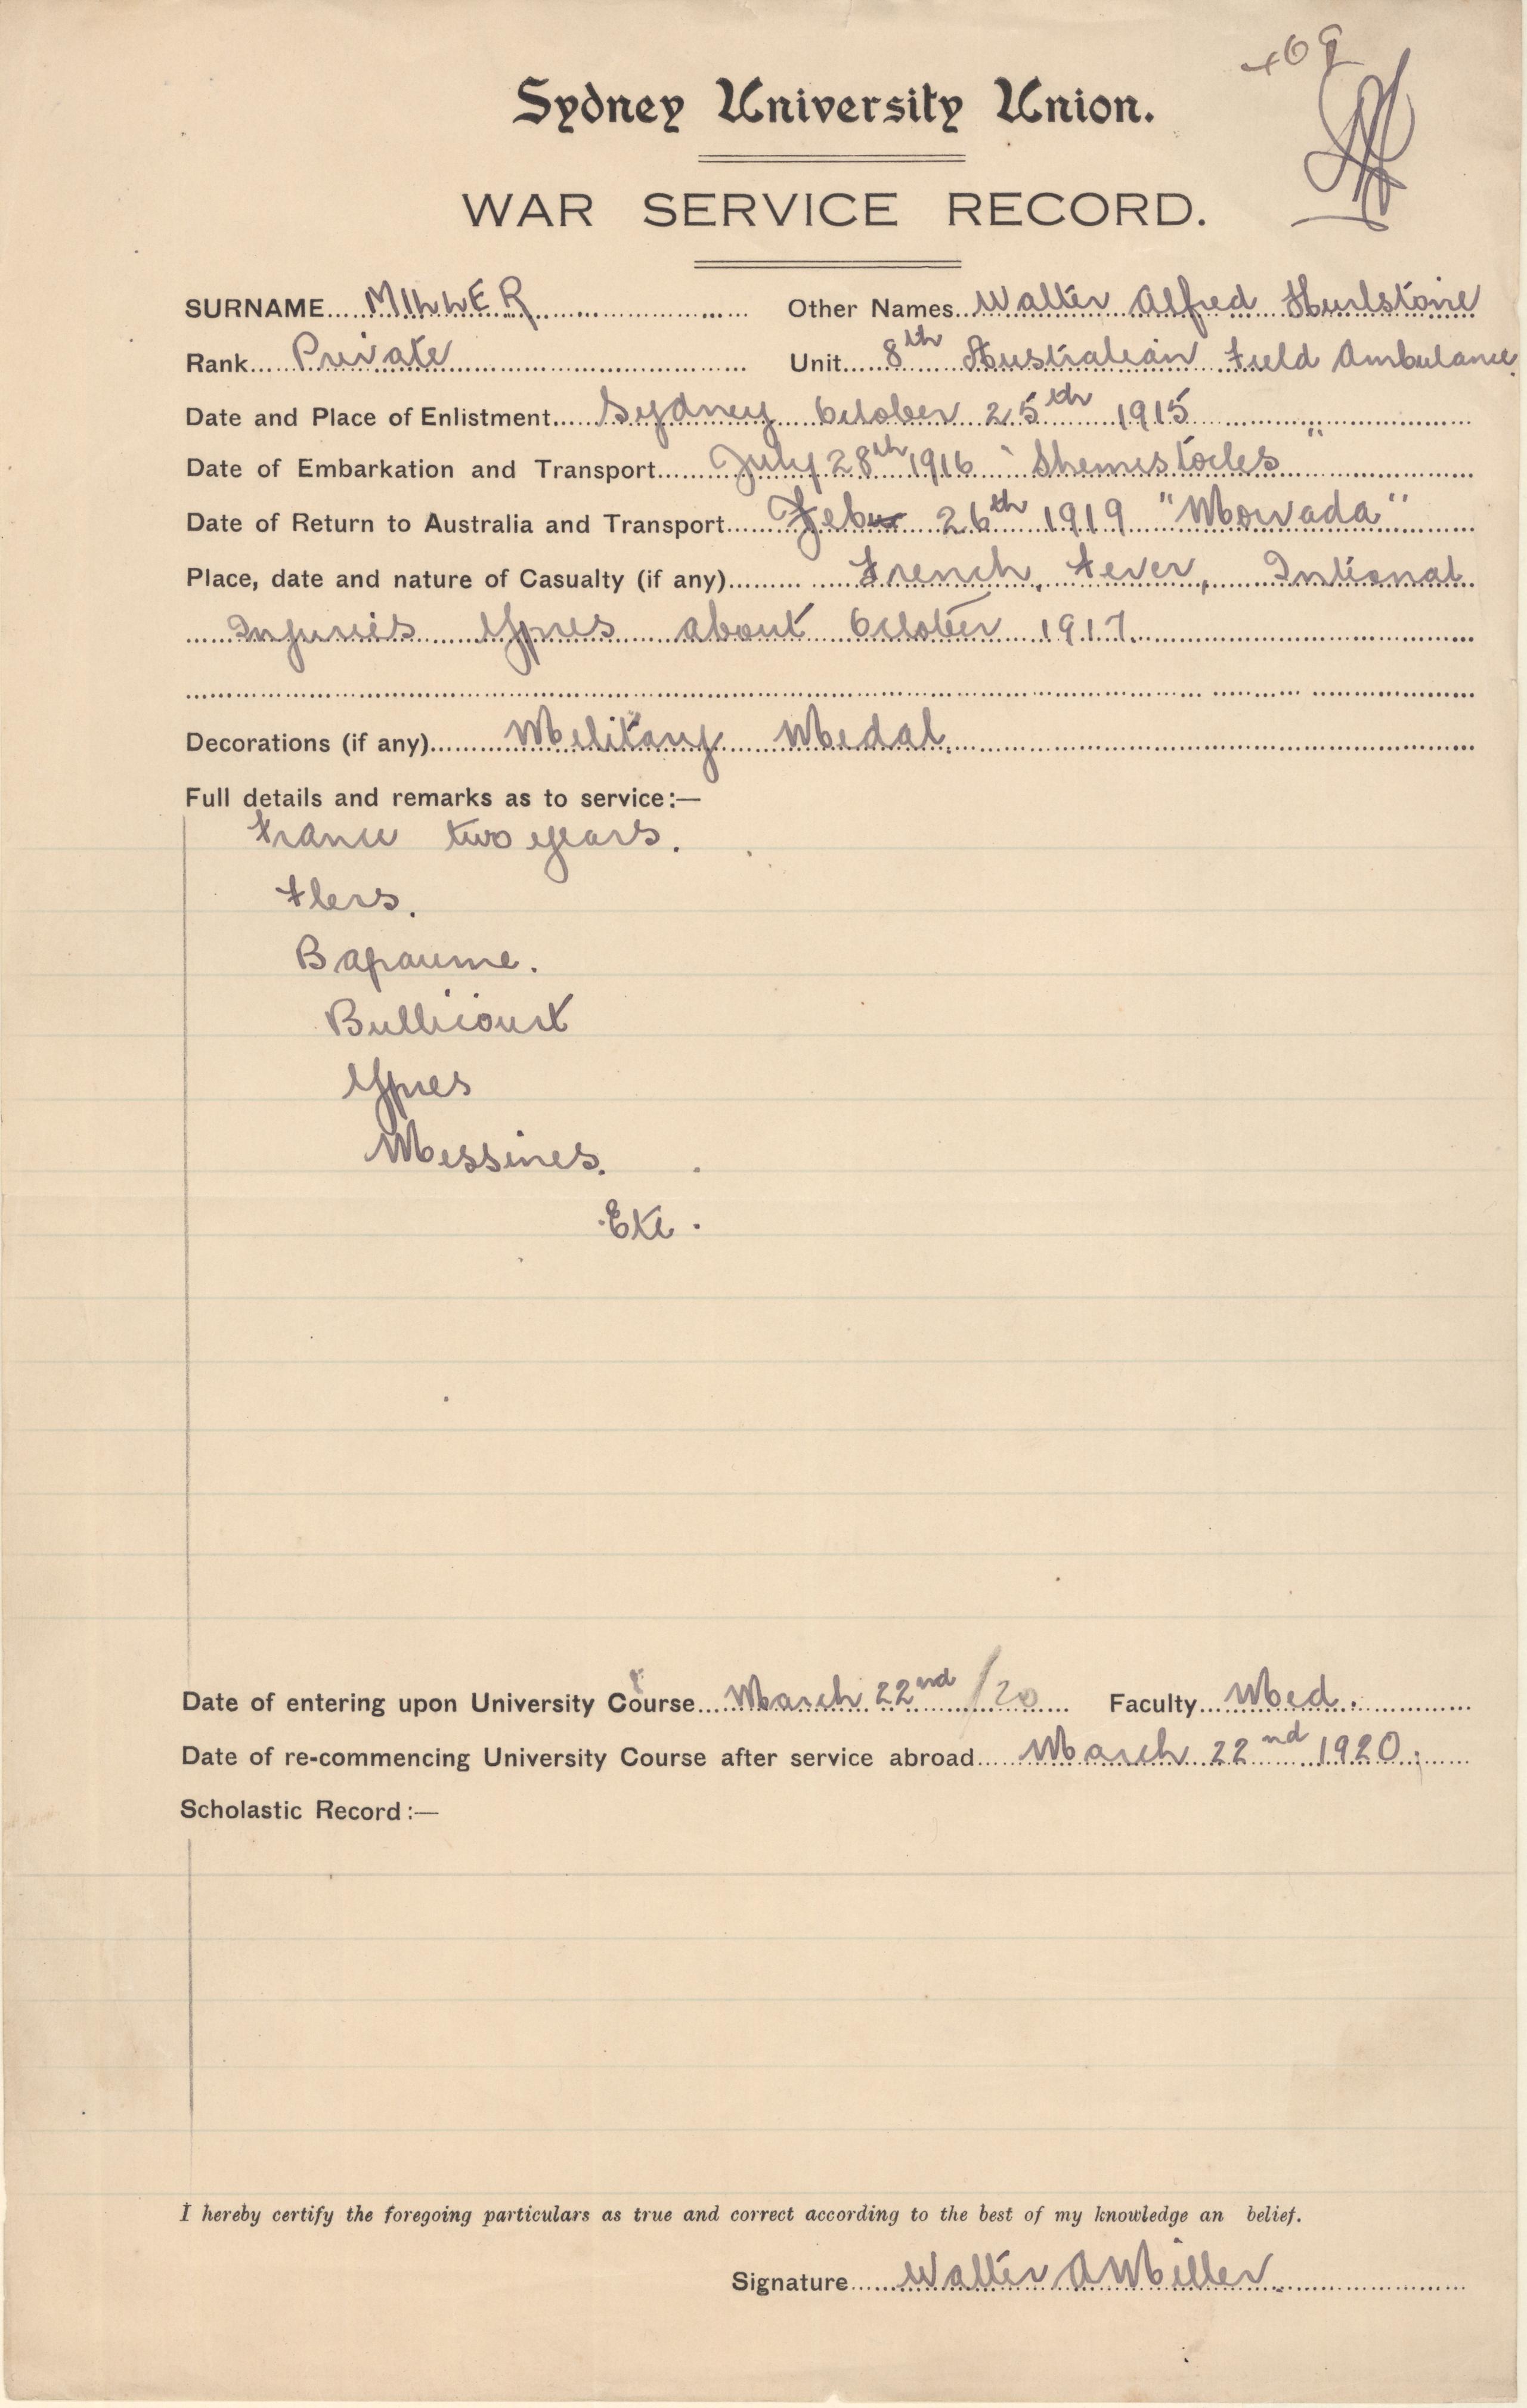 Sydney University Union.
WAR SERVICE RECORD.
SURNAME MILLER Other Names Walter Alfred Hurlstone
Rank Private Unit 8th Australian Field Ambulance.
Date and Place of Enlistment Sydney October 25th 1915
Date of Embarkation and Transport July 28th 1916 "Themistocles"
Date of Return to Australia and Transport Feb 26th 1919 "Morvada"
Place, date and nature of Casualty (if any) Trench Fever, Internal
Injuries Ypres about October 1917.
Decorations (if any) Military Medal.
Full details and remarks as to service:—
France two years.
Flers.
Bapaume.
Bullicourt
Ypres
Messines.
Etc.
Date of entering upon University Course March 22nd /20 Faculty Med.
Date of re-commencing University Course after service abroad March 22nd 1920.
Scholastic Record:—
I hereby certify the foregoing particulars as true and correct according to the best of my knowledge an belief.
Signature Walter A Miller.